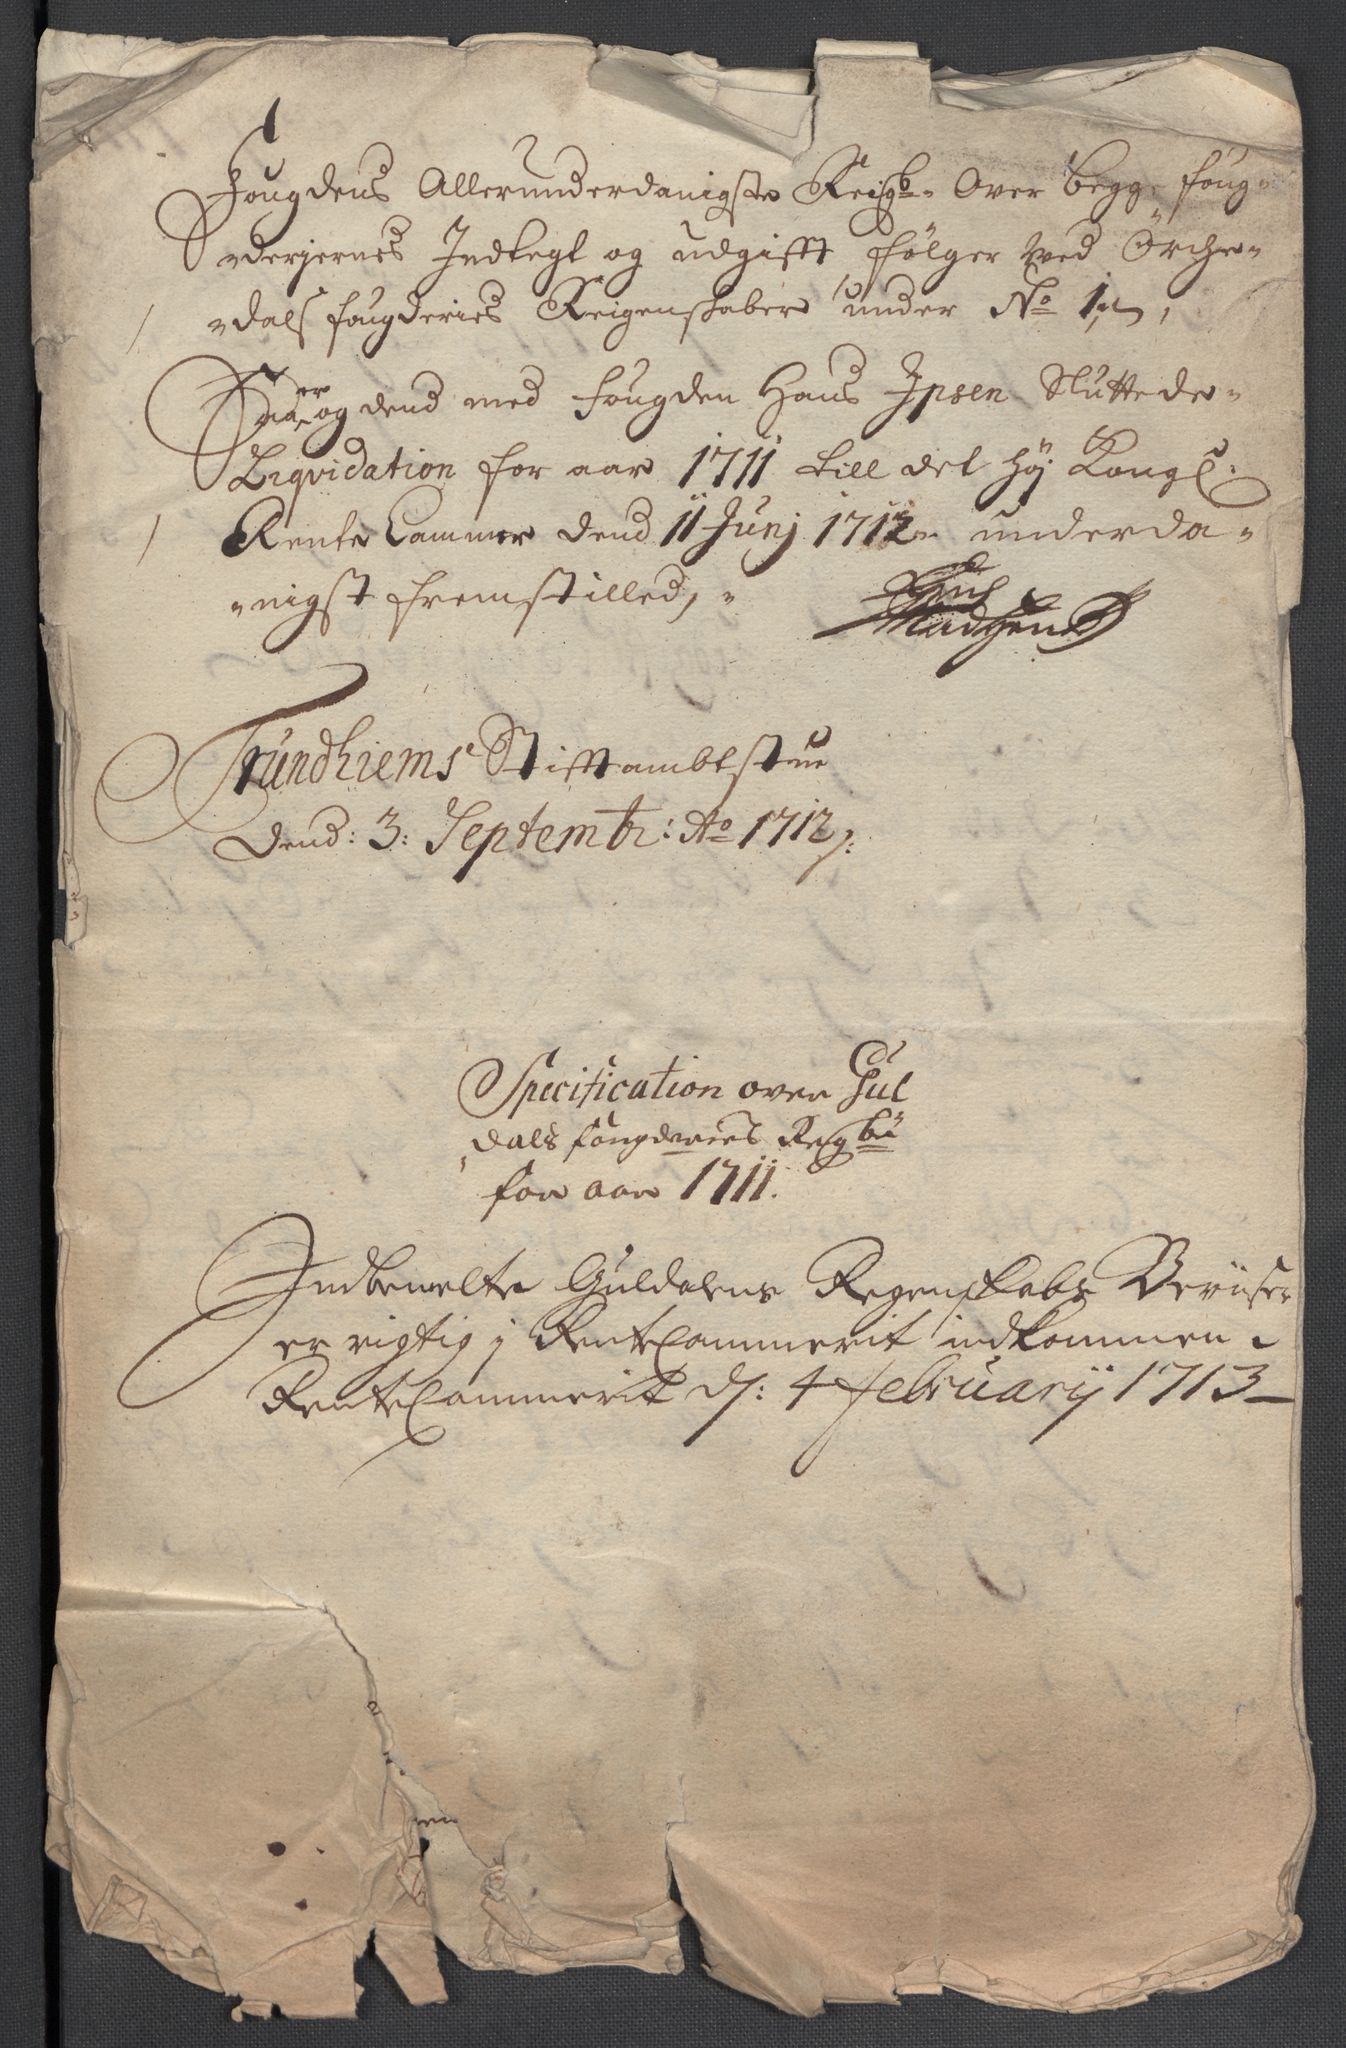 Fougdens Allerunderdanigste Reigb: Over begge foug-
-derjernes Indtegt og udgifft, følger ved Örche-
-dals fougderies Reigenskaber under No 1,
og dend med fougden Hans Ipsen Sluttede
Liqvidation for aar 1711 till det høj Kongl:
Rente Cammer dend 11 Junj 1712 underda-
-nigst fremstilled,
Madhsen
Trundhiems Stifftambtstue
dend: 3: Septembr: Ao 1712
Specification over Gul
dals fougderies Regb
for aar 1711.
Indbemelte Guldalens Regenskabs Beviiser
er rigtig j RenteCammerit indkommen
RenteCammerit d: 4 februarij 1713